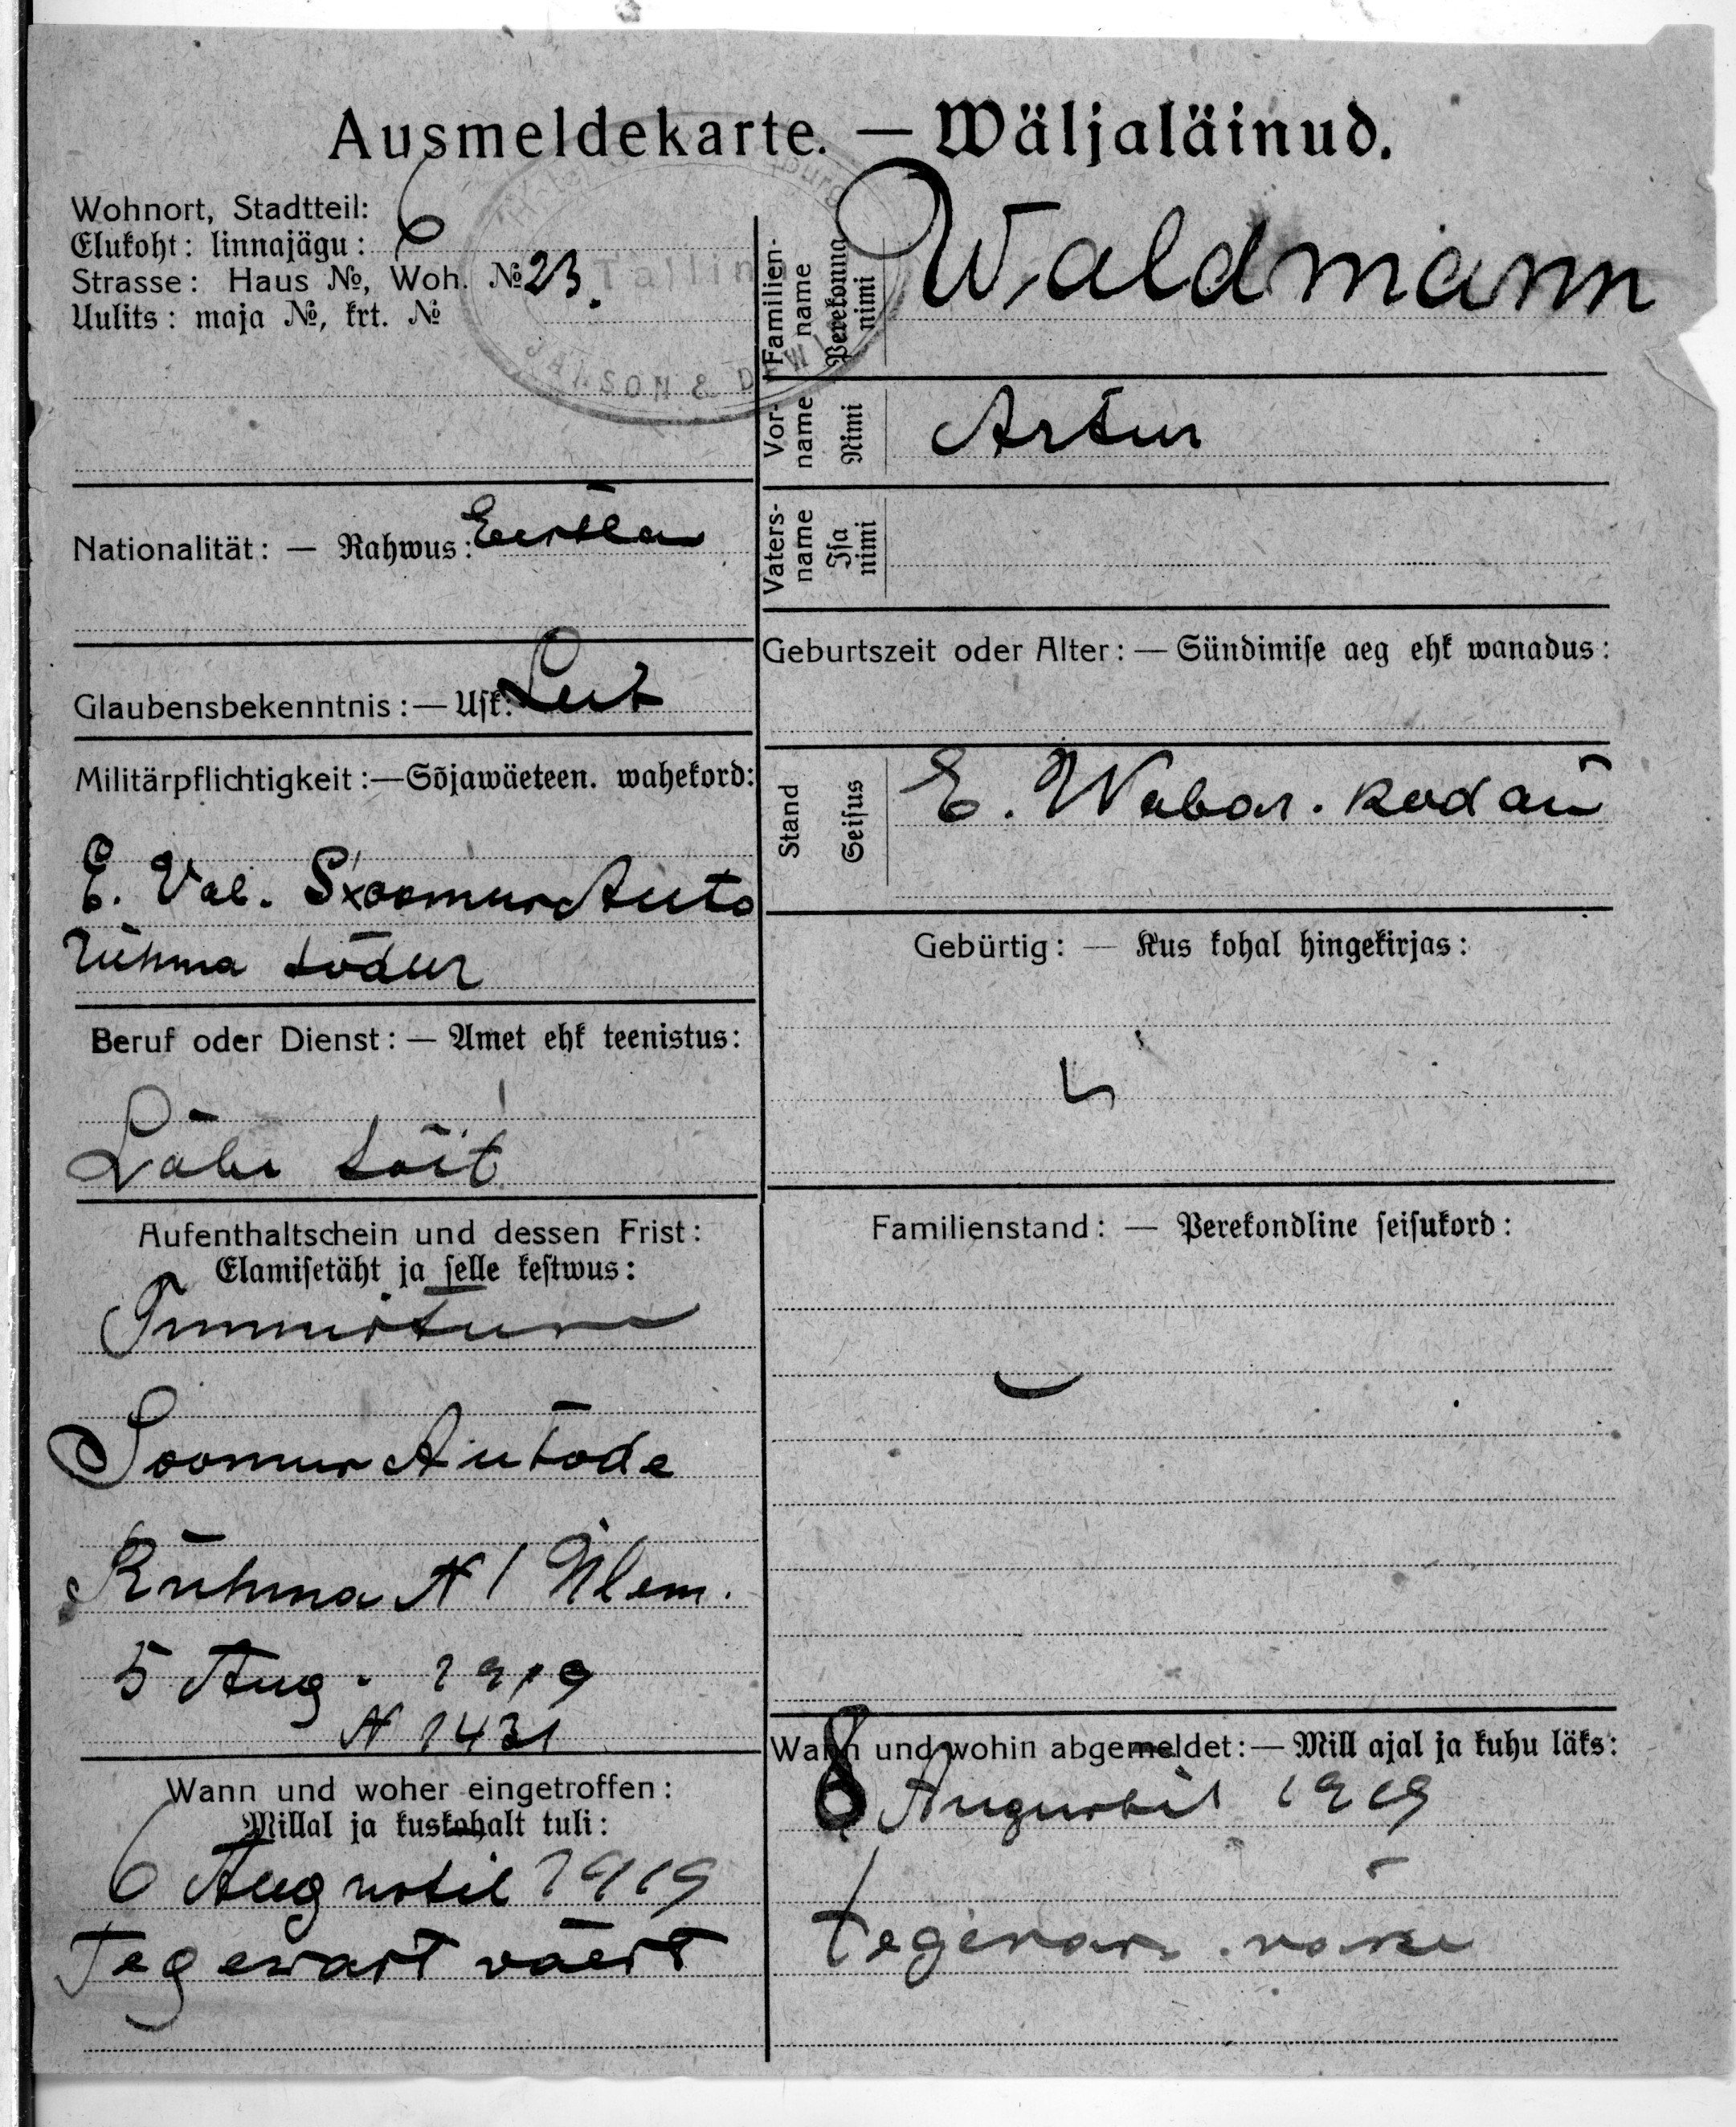 Ausmeldekarte. — Wäljaläinud.
Wohnort, Stadtteil:
Elukoht: linnajägu: 6
Strasse: Haus №, Woh. № 23.
Uulits: maja №, krt. №
Tallinn
JANSON &
Familien-
name
Perekonna
nimi
Waldmann
Vor-
name
Nimi
Artur
Vaters-
name
Isa
nimi
Nationalität: — Rahwus: Eestlan
Glaubensbekenntnis: — Usk: Lut
Geburtszeit oder Alter: — Sündimise aeg ehk wanadus:
Militärpflichtigkeit: — Sõjawäeteen. wahekord:
E. Vab. Soomus Auto
rühma sõdur
Stand
Seisus
E. Wabar. kodan
Gebürtig: — Kus kohal hingekirjas:
Beruf oder Dienst: — Amet ehk teenistus:
Läbi sõit
Aufenthaltschein und dessen Frist:
Elamisetäht ja selle kestwus:
Tunnistus
Soomus Autode
Rühma N 1 Ülem.
5 Aug. 1919
N 1431
Familienstand: — Perekondline seisukord:
Wann und woher eingetroffen:
Millal ja kuskohalt tuli:
6 Augustil 1919
Tegewast väest
Wann und wohin abgemeldet: — Mill ajal ja kuhu läks:
8 Augustil 1919